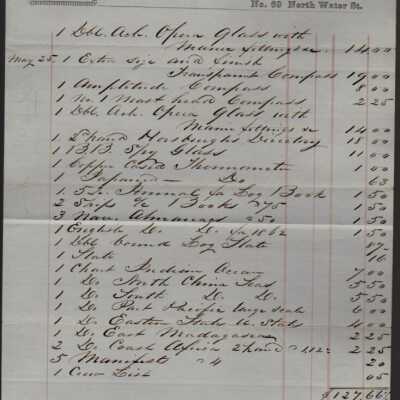 No. 69 North Water St.
1 Dbl. Ach. Opera Glass with
Marine fittings &c 14.00
May 25 1 Extra size and finish
Transparent Compass 19 00
1 Amplitude Compass 8 00
1 No. 1 Mast head Compass 2 25
1 Dbl. Ach. Opera Glass with
Marine fittings &c 14 00
1 2nd hand Horsburghs Directory 18 00
1 Spy Glass 11 00
1 Copper Cased Thermometer 1 00
1 Japaned Do 63
1 Journal Log Book 1 50
2 Ships Books 75 1 50
3 Nau. Almanacs 50 1 50
1 English Do. Do. for 1862 1 50
1 Dbl bound Log Slate
1 Slate 16
1 Chart Indian Ocean 7 00
1 Do. North China Seas 5 50
1 Do. South D. D. 5 50
1 Do. Pacific large scale 6 00
1 Do. Eastern 4 00
1 Do. East Madagascar 2 25
2 Do. Coast Africa 2 hand 2 25
5 Manifest 4 20
1 Crew List 05
$127.66